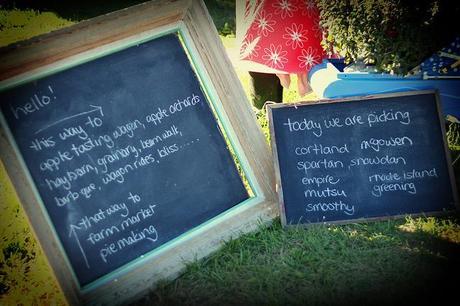 hello!
this way to
apple tasting wagon, apple orchards
haybarn, grainary, barn walk,
barb que wagon rides bliss.....
that way to
farm market
pie making
today we are picking
cortland mcgowen
spartan snowdan
empire rhode Island
mutsu greening
smoothy